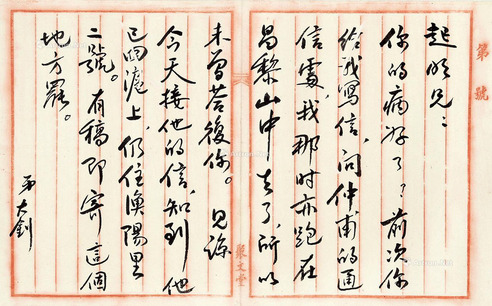 起明兄：
你的病好了？前次你
给我寫信，问仲甫的通
信處，我那时亦跑在
昌黎山中去了，所以
未曾荅復你。見諒
今天接他的信，知到他
已回滬上，仍住渔陽里
二號。有稿即寄這個
地方罷。
弟大釗
第 號
聚文堂